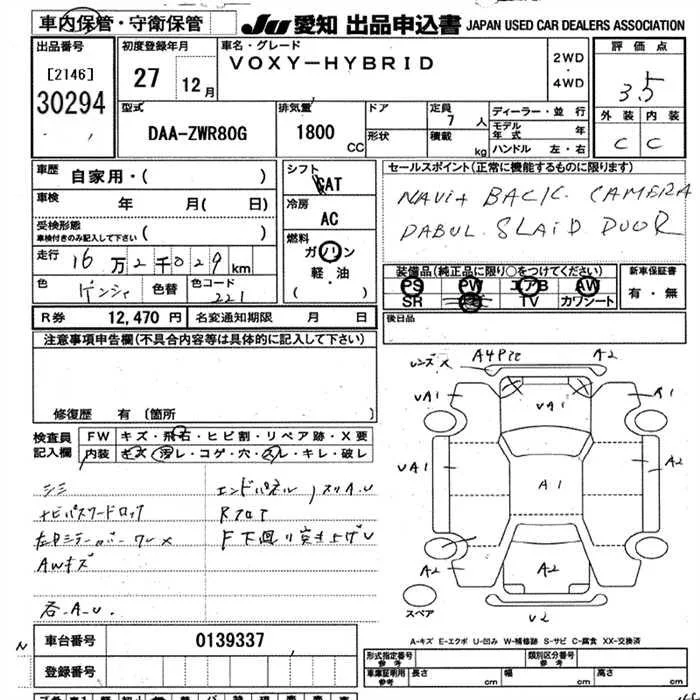 車内保管・守衛保管 JU 愛知 出品申込書 JAPAN USED CAR DEALERS ASSOCIATION
出品番号 [2146] 30294
初度登録年月 27 12月
車名・グレード VOXY-HYBRID
2WD・4WD
評価点 3.5
外装 内装
C C
型式 DAA-ZWR80G
排気量 1800 CC
ドア 形状
定員 7 人
積載 kg
ディーラー・並行
モデル年式 年
ハンドル 左・右
車歴 自家用・( )
車検 年 月( 日)
受検形態 車検付きのみ記入して下さい ( )
走行 16万2千029km
色 ゲンシャ 色替 色コード 221
シフト
冷房 AC
燃料 ガソリン
軽・油
( )
セールスポイント(正常に機能するものに限ります)
NAVi+ BACK. CAMERA
DABUL SLAiD DUOR
装備品(純正品に限り○をつけてください) 新車保証書
PS PW エアB AW 有・無
SR TV カワシート
後日品
R券 12,470 円 名変通知期限 月 日
注意事項申告欄(不具合内容等は具体的に記入して下さい)
修復歴 有 〔箇所
検査員記入欄
FW キズ・飛石・ヒビ割・リペア跡・X要
内装 キズ・汚レ・コゲ・穴・スレ・キレ・破レ
シミ
ナビパスワードロック
AWキズ
各A.U.
エンドパネル
F下廻り突き上げU
レンズX A4 A2
UA1 UA1 A1
UA1 A1 A2
A2 A2
スペア U2
A-キズ E-エクボ U-凹み W-補修跡 S-サビ C-腐食 XX-交換済
N 車台番号 0139337
登録番号
形式指定番号 参考 類別区分番号 参考
車庫証明用 参考 長さ cm 幅 cm 高さ cm